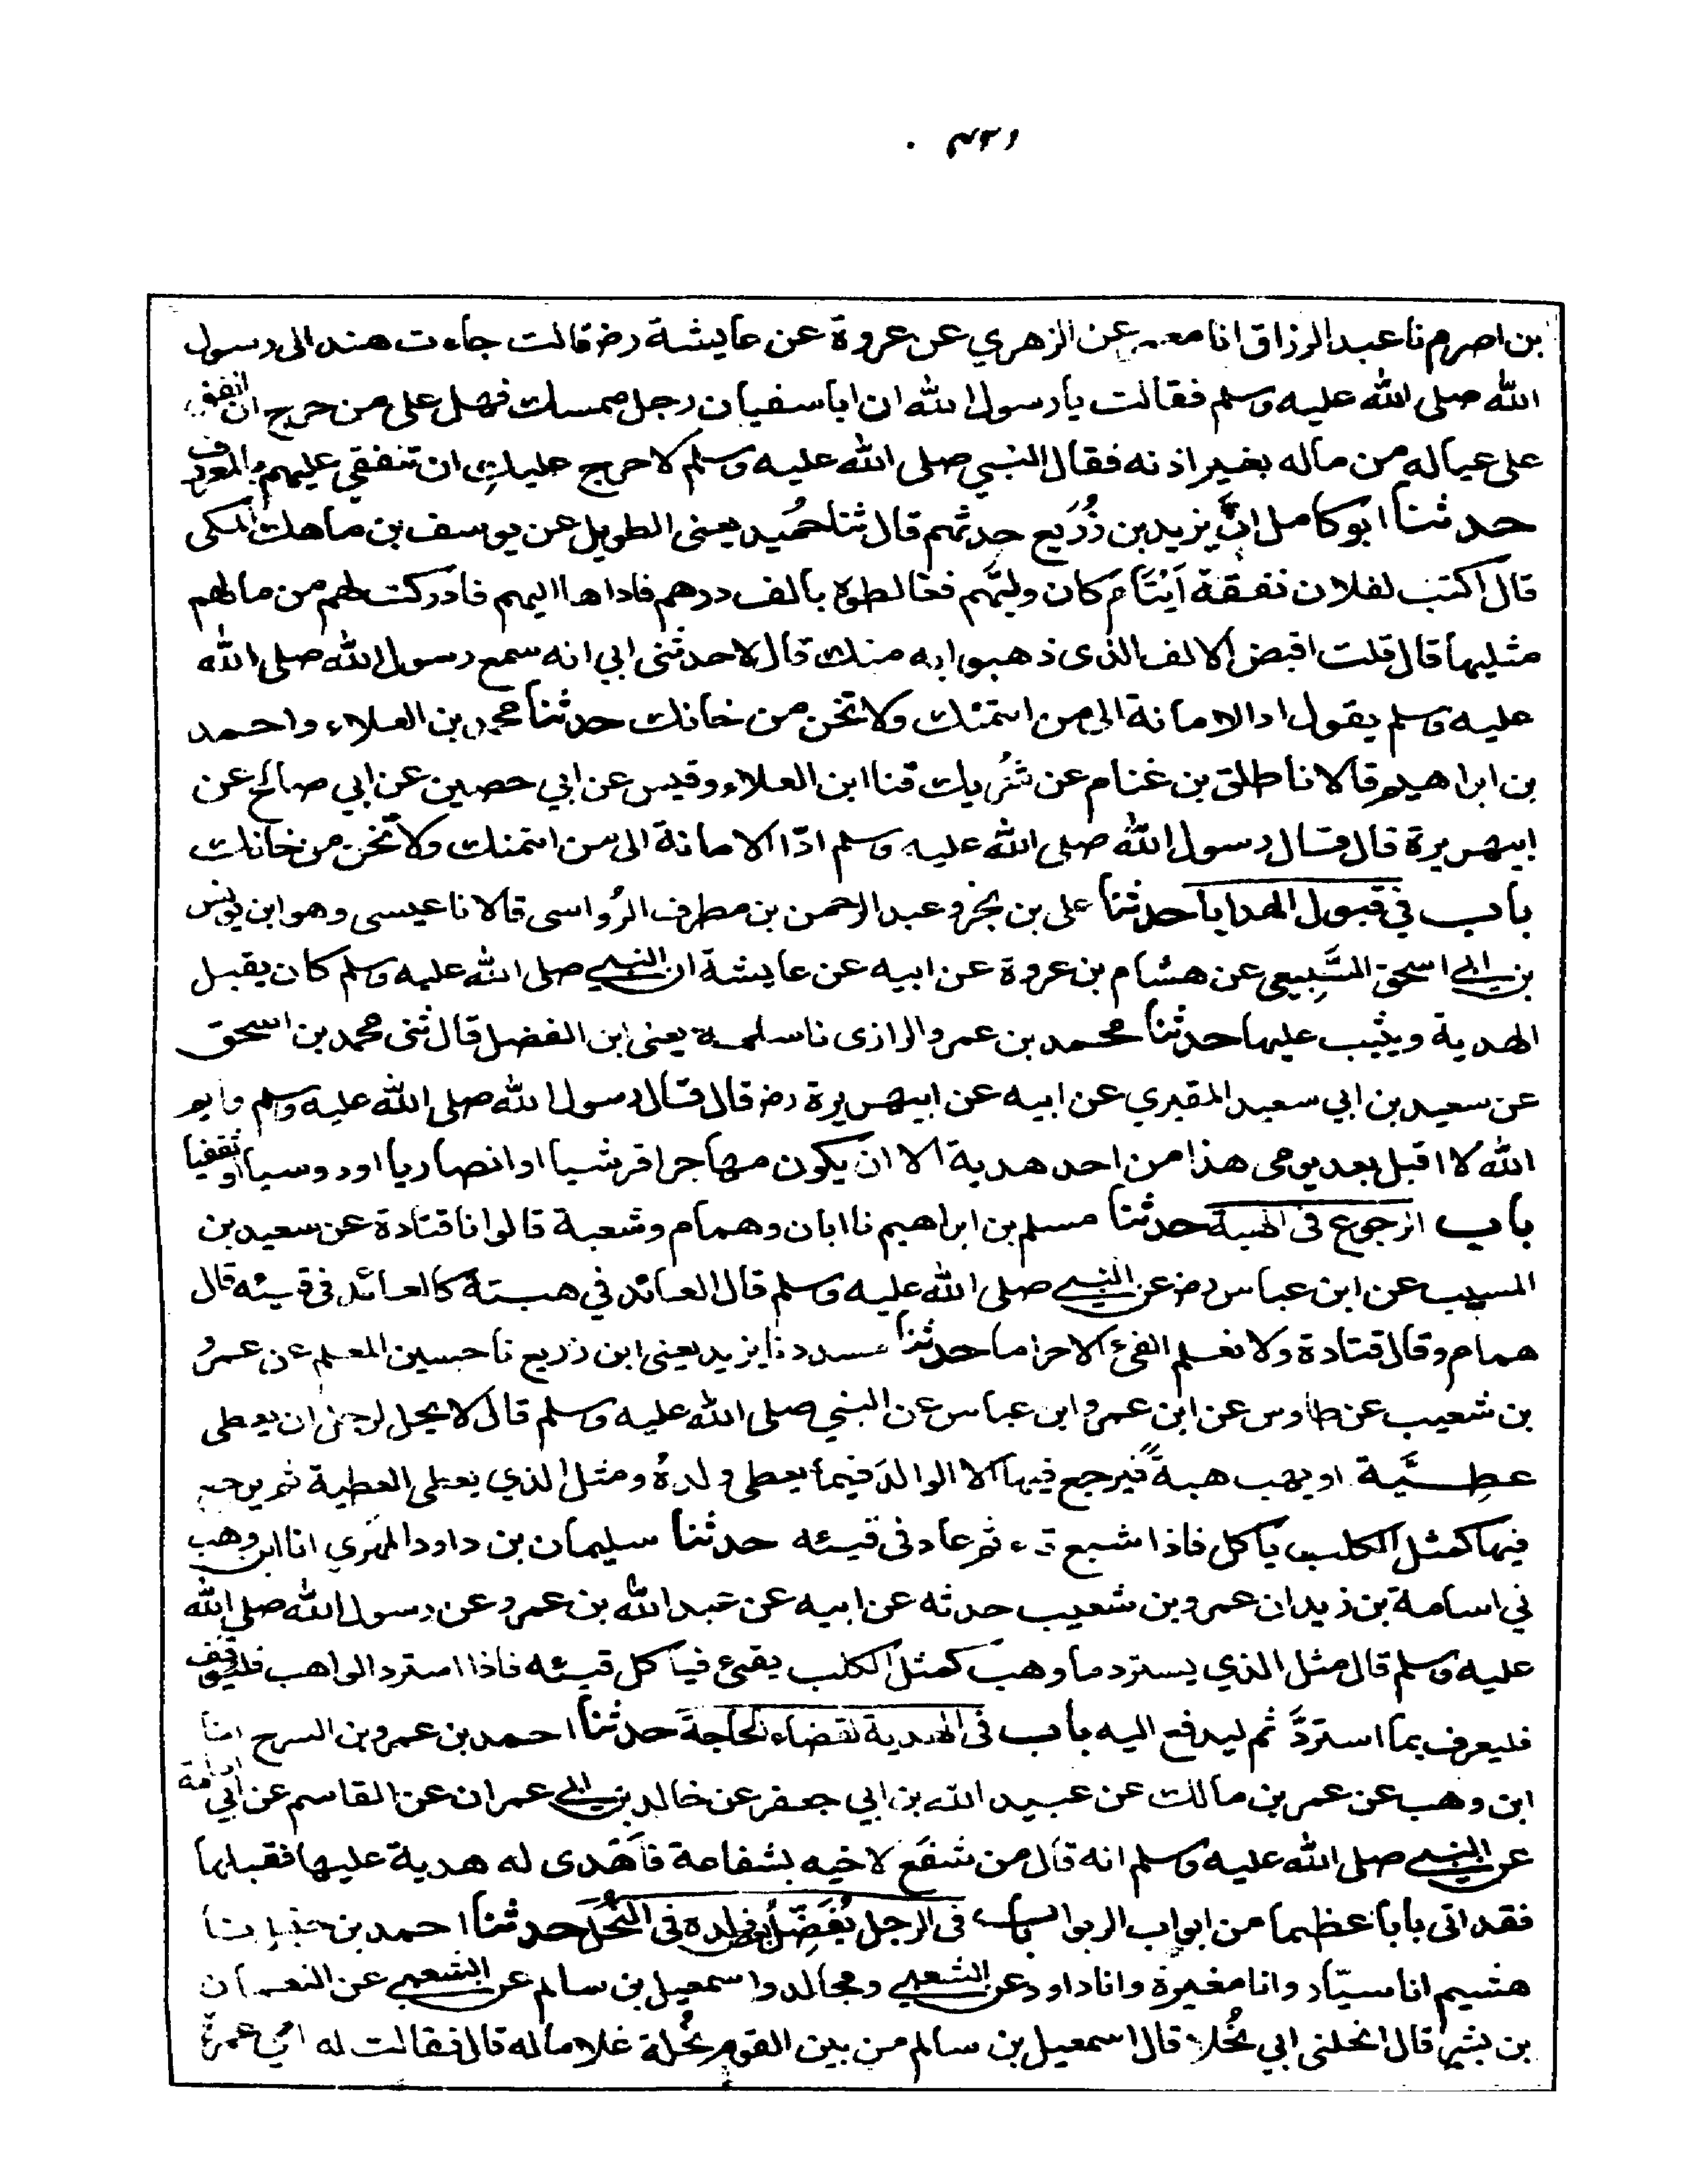 بن اصرم نا عبد الرزاق انا معمر عن الزهري عن عروة عن عايشة رضـ قالت جاءت هند الى رسول
الله صلى الله عليه وسلم فقالت يا رسول الله ان ابا سفيان رجل ممسك فهل على من حرج ان انفق
على عياله من ماله بغير اذنه فقال النبي صلى الله عليه وسلم لا حرج عليكِ ان تنفقي عليهم بالمعروف
حدثنا ابو كامل انّ يزيد بن زُرَيع حدثهم قال ثنا حُميد يعنى الطويل عن يوسف بن ماهك المكى
قال اكتب لفلان نفقة اَيْتَامٍ كان وليَّهم فغالطوه بالف درهم فاداها اليهم فادركت لهم من مالهم
مثليها قال قلت اقبض الالف الذى ذهبوا به منك قال لا حدثنى ابي انه سمع رسول الله صلى الله
عليه وسلم يقول اد الامانة الى من ائتمنك ولا تخن من خانك حدثنا محمد بن العلاء واحمد
بن ابراهيم قالا نا طلق بن غنام عن شَرِيك قنا ابن العلاء وقيس عن ابي حصين عن ابي صالح عن
ابيهريرة قال قال رسول الله صلى الله عليه وسلم ادّ الامانة الى من ائتمنك ولا تخن من خانك
باب في قبول الهدايا حدثنا على بن بحر وعبد الرحمن بن مطرف الرُواسى قالا نا عيسى وهو ابن يونس
بن ابي اسحق السَّبِيعي عن هشام بن عروة عن ابيه عن عايشة ان النبي صلى الله عليه وسلم كان يقبل
الهدية ويثيب عليها حدثنا محمد بن عمرو الرازى نا سلمة يعنى ابن الفضل قال ثنى محمد بن اسحق
عن سعيد بن ابي سعيد المقبري عن ابيه عن ابيهريرة رضـ قال قال رسول الله صلى الله عليه وسلم وايم
الله لا اقبل بعد يومى هذا من احد هدية الا ان يكون مهاجرا قرشيا او انصاريا او دوسيا او ثقفيا
باب الرجوع فى الهبة حدثنا مسلم بن ابراهيم نا ابان وهمام وشعبة قالوا نا قتادة عن سعيد بن
المسيب عن ابن عباس رضـ عن النبي صلى الله عليه وسلم قال العائد في هبته كالعائد فى قيئه قال
همام وقال قتادة ولا نعلم القئ الا حراما حدثنا مسدد نا يزيد يعنى ابن زريع نا حسين المعلم عن عمرو
بن شعيب عن طاوس عن ابن عمر وابن عباس عن النبي صلى الله عليه وسلم قال لا يحل لرجل ان يعطى
عطِيَّة او يهب هبةً فيرجع فيها الا الوالد فيما يعطى ولده ومثل الذي يعطى العطية ثم يرجع
فيها كمثل الكلب ياكل فاذا شبع قاء ثم عاد فى قيئه حدثنا سليمان بن داود المَهري انا ابن وهب
ني اسامة بن زيد ان عمرو بن شعيب حدثه عن ابيه عن عبد الله بن عمرو عن رسول الله صلي الله
عليه وسلم قال مثل الذي يسترد ما وهب كمثل الكلب يقئ فياكل قيئه فاذا استرد الواهب فليوقف
فليعرف بما استردَّ ثم ليدفع اليه باب فى الهدية لقضاء الحاجة حدثنا احمد بن عمرو بن السرح انا
ابن وهب عن عمر بن مالك عن عبيد الله بن ابي جعفر عن خالد بن ابي عمران عن القاسم عن ابي امامة
عن النبي صلى الله عليه وسلم انه قال من شفَع لاخيه بشفاعة فاَهْدى له هدية عليها فقبلها
فقد اتى بابا عظيما من ابواب الربوا باب فى الرجل يُفَضِّلُ بعض ولده فى النُحْل حدثنا احمد بن حنبل نا
هشيم انا سيّار وانا مغيرة وانا داود عن الشعبي ومجالد واسمعيل بن سالم عن الشعبي عن النعمان
بن بشير قال انحلنى ابي نُحْلا قال اسمعيل بن سالم من بين القوم نحلة غلاما له قال فقالت له امي عمرة